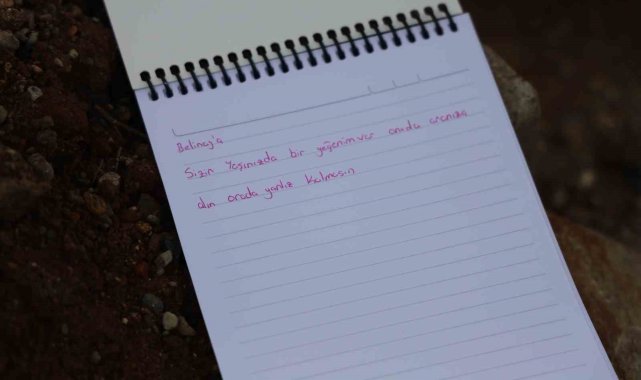 Belinay'a
Sizin Yaşınızda bir yeğenim var onuda aranıza
alın orada yanlız kalmasın